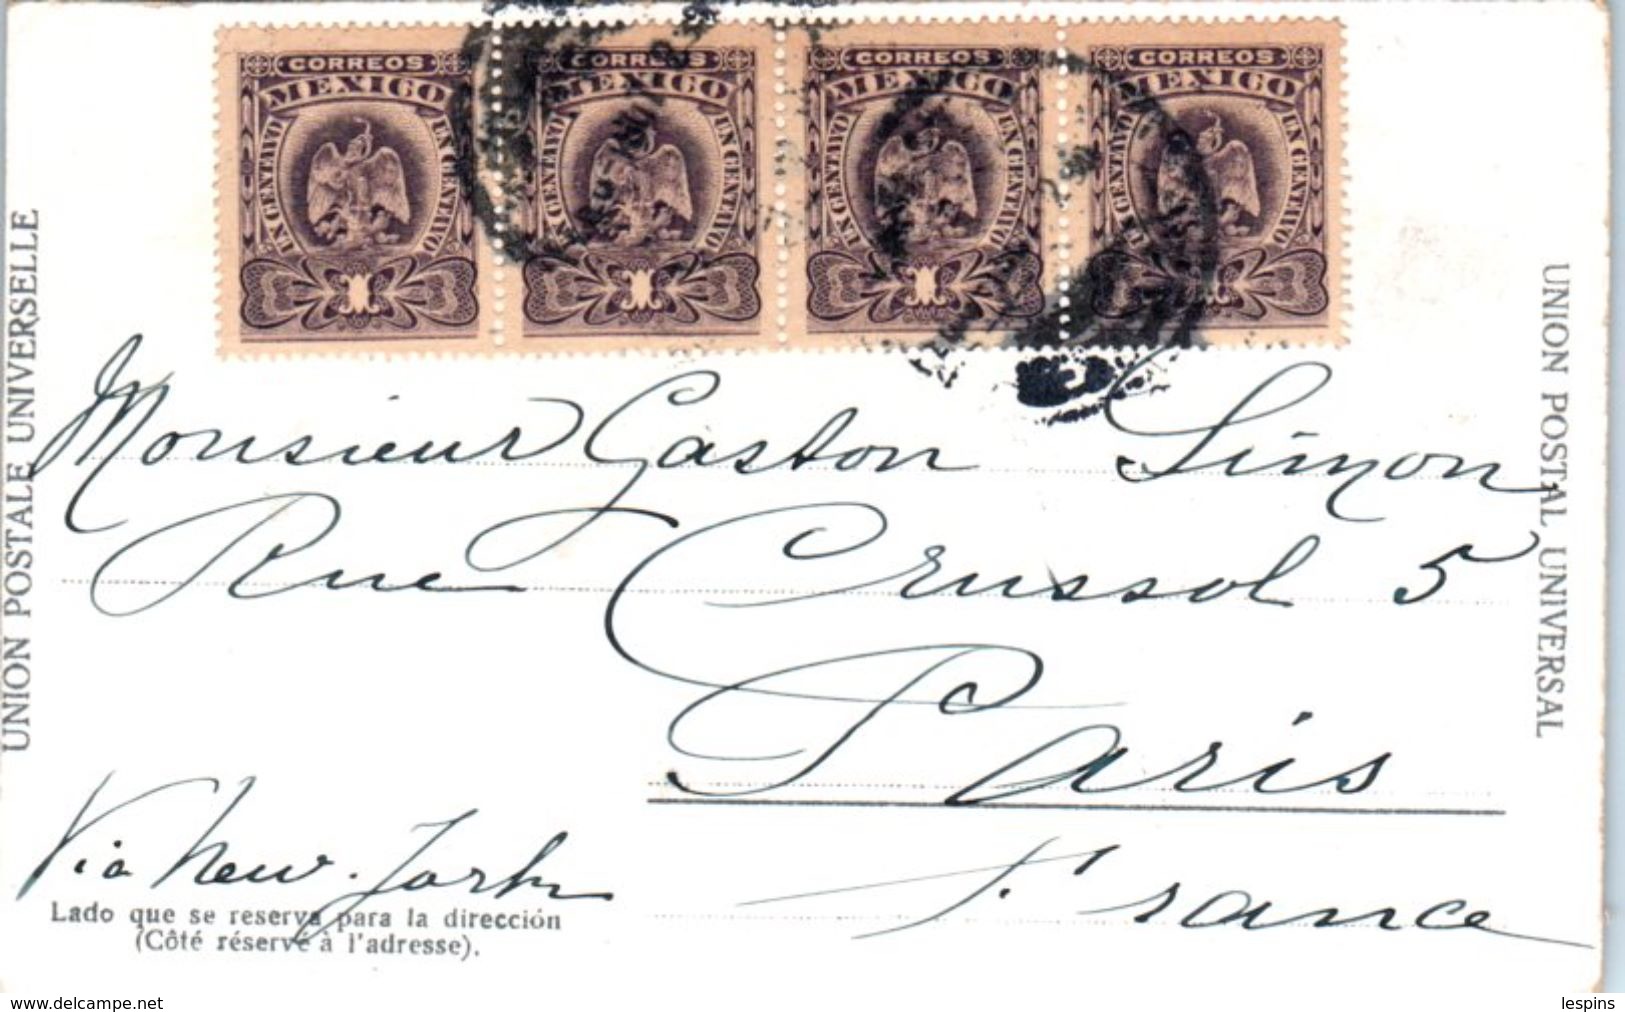 CORREOS CORREOS CORREOS CORREOS
MEXICO MEXICO MEXICO MEXICO
UN CENTAVO UN CENTAVO UN CENTAVO UN CENTAVO UN CENTAVO UN CENTAVO UN CENTAVO UN CENTAVO
1 1 1 1
UNION POSTALE UNIVERSELLE
UNION POSTAL UNIVERSAL
Monsieur Gaston Simon
Rue Crussol 5
Paris
France
Via New-York
Lado que se reserva para la dirección
(Côté réservé à l'adresse).
www.delcampe.net
lespins